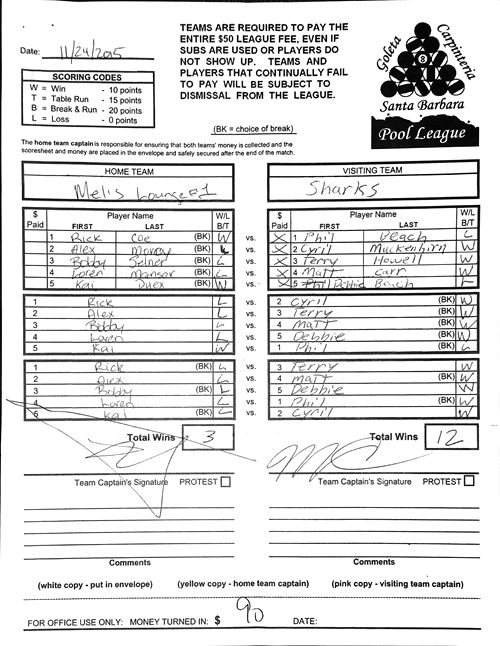 Date: 11/24/2015
TEAMS ARE REQUIRED TO PAY THE
ENTIRE $50 LEAGUE FEE, EVEN IF
SUBS ARE USED OR PLAYERS DO
NOT SHOW UP. TEAMS AND
PLAYERS THAT CONTINUALLY FAIL
TO PAY WILL BE SUBJECT TO
DISMISSAL FROM THE LEAGUE.
(BK = choice of break)
Goleta Carpinteria
8
Santa Barbara
Pool League
SCORING CODES
W = Win - 10 points
T = Table Run - 15 points
B = Break & Run - 20 points
L = Loss - 0 points
The home team captain is responsible for ensuring that both teams' money is collected and the
scoresheet and money are placed in the envelope and safely secured after the end of the match.
HOME TEAM VISITING TEAM
Mel's Lounge #1 Sharks
$ Paid Player Name FIRST LAST W/L B/T $ Paid Player Name FIRST LAST W/L B/T
1 Rick Coe (BK) W vs. X 1 Phil Veach L
2 Alex (BK) L vs. X 2 Cyril Muckenhirn W
3 Bobby (BK) L vs. X 3 Terry Howell W
4 Loren (BK) L vs. X 4 Matt Carr W
5 Kai Duex (BK) W vs. X 5 Phil Debbie L
1 Rick L vs. 2 Cyril (BK) W
2 Alex L vs. 3 Terry (BK) W
3 Bobby L vs. 4 Matt (BK) W
4 Loren L vs. 5 Debbie (BK) W
5 Kai W vs. 1 Phil (BK) L
1 Rick (BK) L vs. 3 Terry W
2 Alex (BK) L vs. 4 Matt W
3 Bobby (BK) L vs. 5 Debbie W
4 Loren (BK) L vs. 1 Phil W
5 Kai (BK) L vs. 2 Cyril W
Total Wins 3 Total Wins 12
Team Captain's Signature PROTEST Team Captain's Signature PROTEST
Comments Comments
(white copy - put in envelope) (yellow copy - home team captain) (pink copy - visiting team captain)
FOR OFFICE USE ONLY: MONEY TURNED IN: $ 90 DATE: